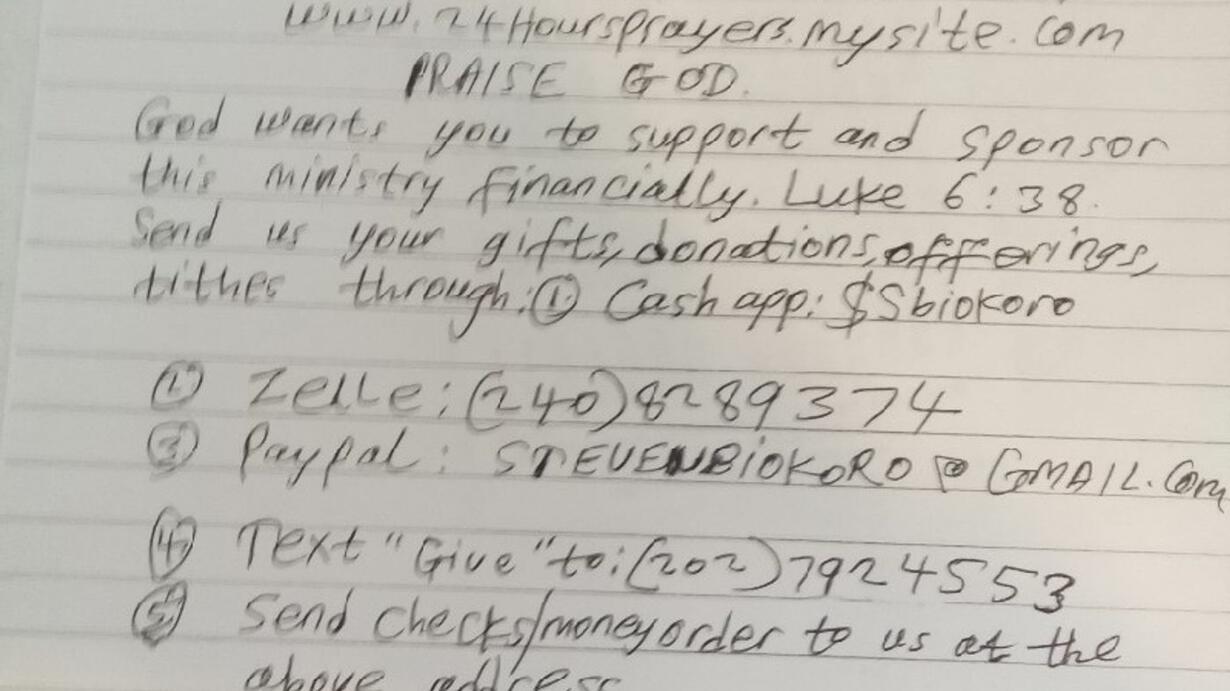 www.24Hoursprayers.mysite.com
PRAISE GOD.
God wants you to support and sponsor
this ministry financially. Luke 6:38.
Send us your gifts, donations, offerings,
tithes through: ① Cash app: $Sbiokoro
② Zelle: (240)8289374
③ Paypal: STEVENBiOKORO@GMAIL.Com
④ Text "Give" to: (202)7924553
⑤ Send checks/moneyorder to us at the
above address